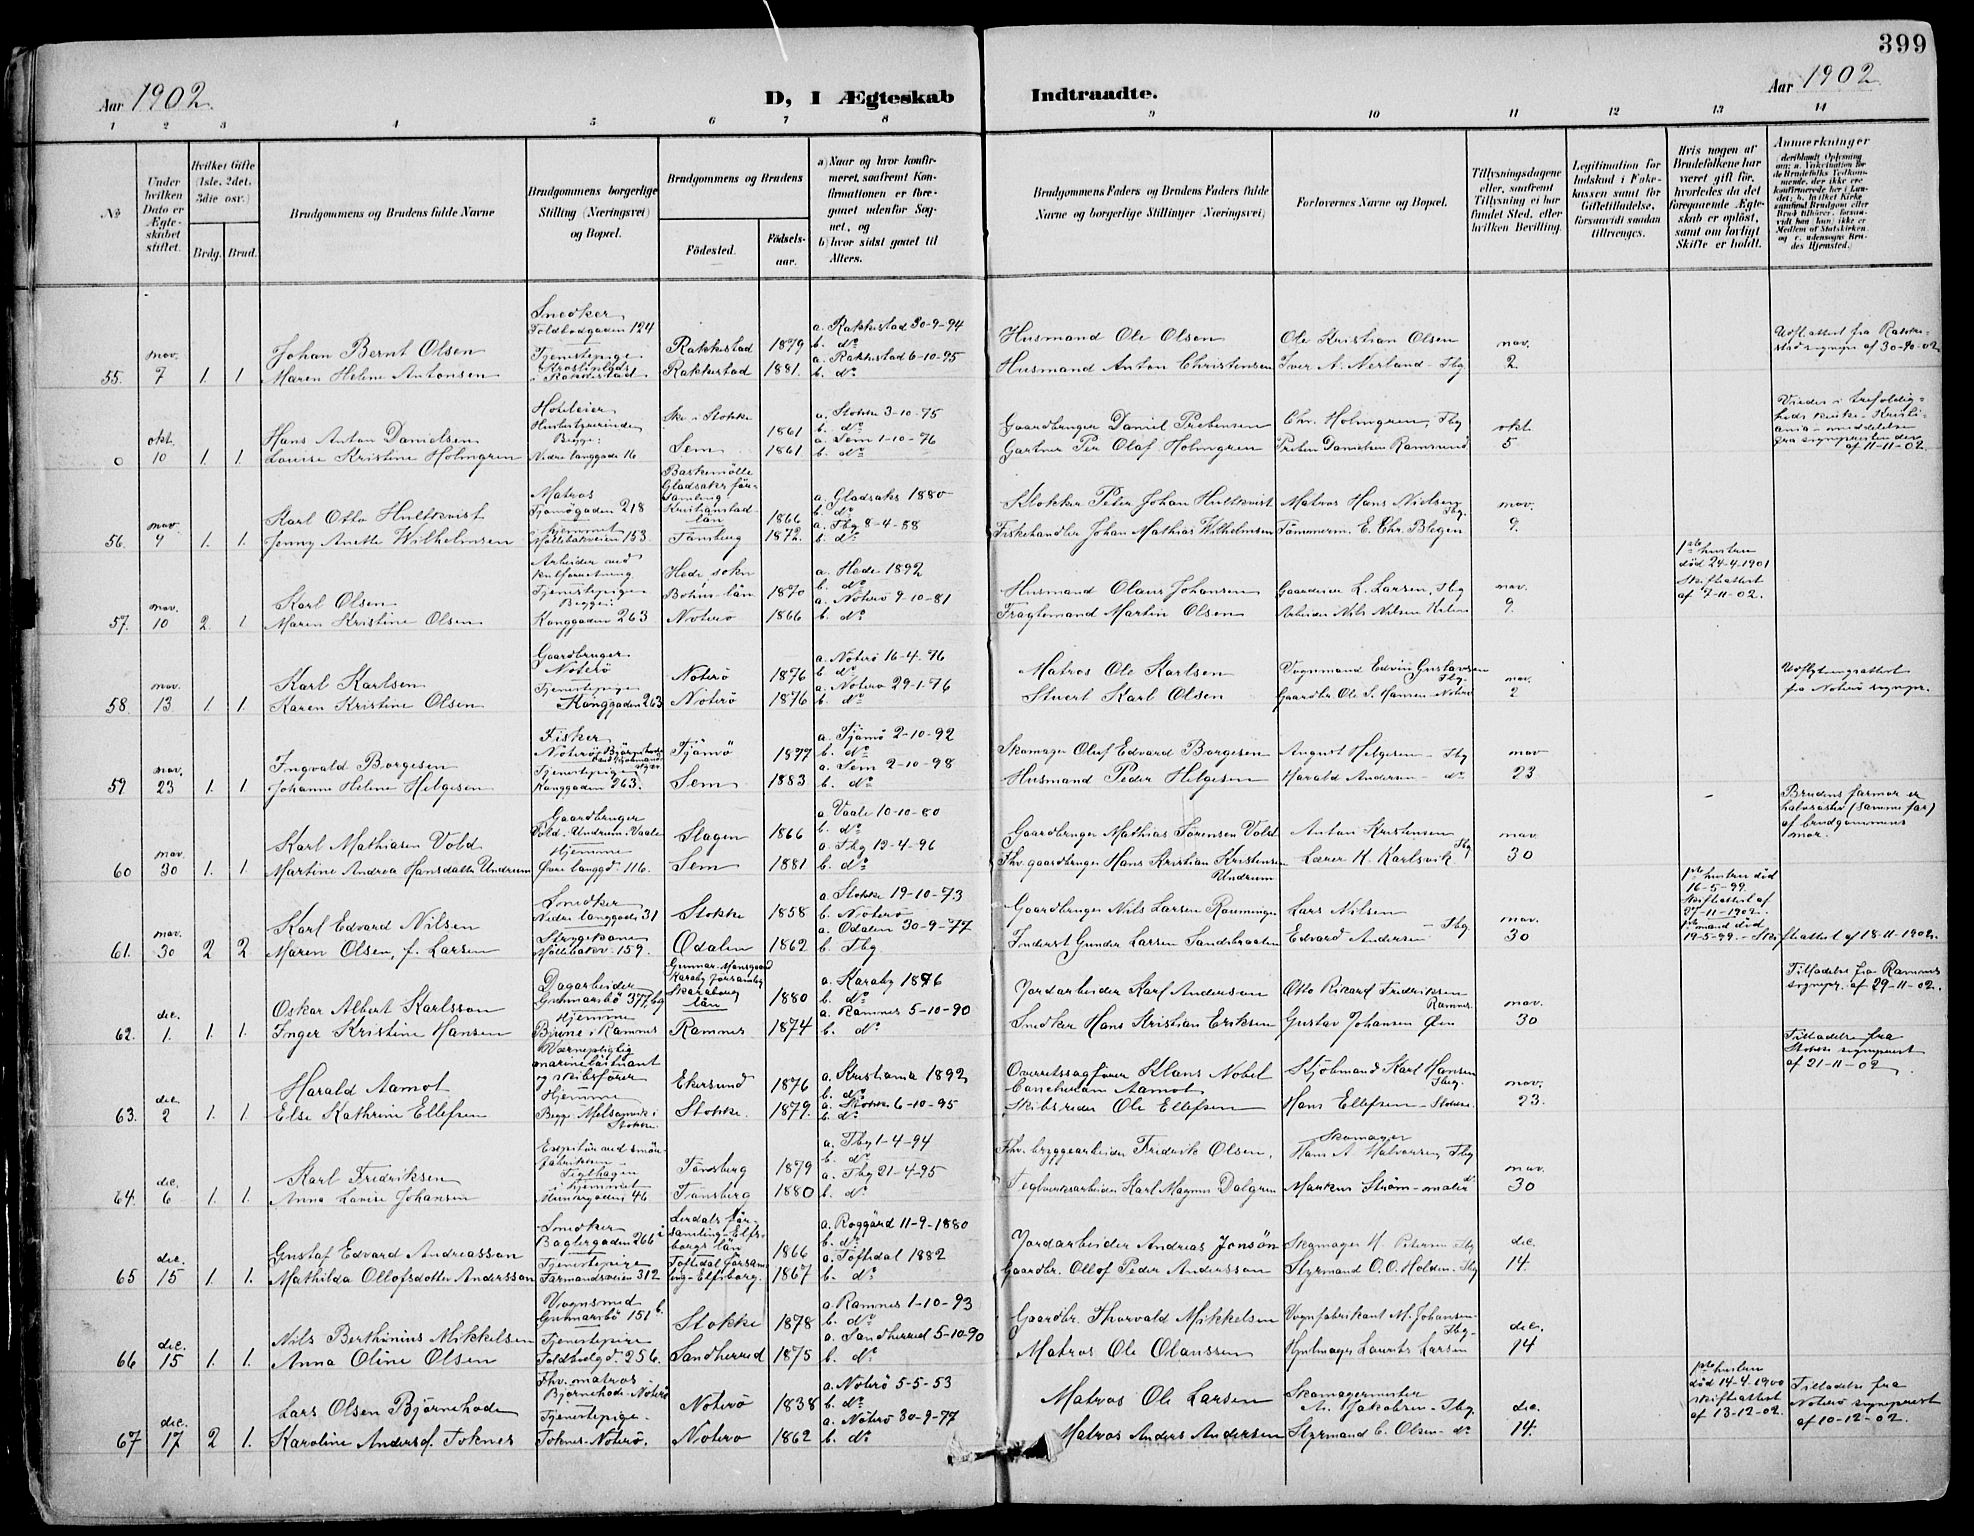 399
Aar 1902.
D, I Ægteskab
Indtraadte.
Aar 1902.
1 2 3 4 5 6 7 8 9 10 11 12 13 14
No
Under hvilken Dato er Ægteskabet stiftet.
Hvilket Gifte (1ste, 2det, 3die osv.)
Brdg. Brud.
Brudgommens og Brudens fulde Navne
Brudgommens borgerlige Stilling (Næringsvei) og Bopæl.
Brudgommens og Brudens
Fødested.
Fødselsaar.
a) Naar og hvor konfirmeret, saafremt Konfirmationen er foregaaet udenfor Sognet, og
b) hvor sidst gaaet til Alters.
Brudgommens Faders og Brudens Faders fulde Navne og borgerlige Stillinger (Næringsvei)
Forlovernes Navne og Bopæl.
Tillysningsdagene eller, saafremt Tillysning ei har fundet Sted, efter hvilken Bevilling.
Legitimation for Indskud i Enkekassen samt for Giftetilladelse, forsaavidt saadan tiltrænges.
Hvis nogen af Brudefolkene har været gift før, hvorledes da det foregaaende Ægteskab er opløst, samt om lovligt Skifte er holdt.
Anmærkninger
55. nov. 7 1. 1
Johan Bernt Olsen
Maren Helene Antonsen
Snedker
Toldbodgaden 124
Tjenestepige
Rakkestad 1879
Rakkestad 1881.
a. Rakkestad 30-9-94
b. do
a. Rakkestad 6-10-95
b. do
Husmand Ole Olsen
Husmand Anton Christensen
Ole Kristian Olsen
Iver A. Nerland - Tbg
nov. 2.
Udfl. attest fra Rakkestad sognepr. af 30-10-02.
0 okt. 10 1. 1.
Hans Anton Danielsen
Louise Kristine Holmgren
Hoteleier
Husbestyrerinde
Begge:
Nedre langgade 16
Stokke 1861
Sem 1861
a. Stokke 3-10-75
b. do
a. Sem 1-10-76
b. do
Gaardbruger Daniel Prebensen
Gartner Per Olaf Holmgren
Chr. Holmgren, Tbg
Preben Danielsen Ramsund
okt. 5
Viedes i trefoldighedskirke - Kristiania - meddelelse fra sognepresten ders. af 11-11-02.
56. nov. 9 1. 1.
Karl Otto Hultkvist
Jenny Anette Wilhelmsen
Matros
Tjømøgaden 218
Hjemmet
Møllebakveien 153.
Baskemölle
Gladsaks församling
Kristianstad län 1866
Tønsberg 1872.
a. Gladsaks 1880
b. do
a. Tbg 8-4-88
b. do
Klokker Peter Johan Hultkvist
Fiskehandler Johan Mathias Wilhelmsen
Matros Hans Nielsen Tbg.
Tømmerm. E. Chr. Blegen
nov. 9.
57. nov. 10 2. 1
Karl Olsen
Maren Kristine Olsen
Arbeider ved kulforretning
Tjenestepige
Begge:
Konggaden 263
Hede sokn
Bohus län 1870
Nøterø 1866
a. Hede 1892
b. do
a. Nøterø 9-10-81
b. do
Husmand Olaus Johansen
Fragtemand Martin Olsen
Gaardeier L. Larsen, Tbg
Arbeider Nils Nilsen
nov. 9.
1ste hustru død 24-4-1901
Skifteattest af 7-11-02.
58. nov. 13 1. 1
Karl Karlsen
Karen Kristine Olsen
Gaardbruger
Nøterø
Tjenestepige
Konggaden 263
Nøterø 1876
Nøterø 1876
a. Nøterø 16-4-96
b. do
a. Nøterø 29-1-76
b. do
Matros Ole Karlsen
Stuert Karl Olsen
Vognmand Edvin Gustavsen Tbg.
Gaardbr. Ole S. Hansen - Nøterø
nov. 2
Udflytningsattest fra Nøterø sognepr.
59 nov. 23 1. 1
Ingvald Borgesen
Johanne Helene Helgesen
Fisker
Tjenestepige
Konggaden 263.
Tjømø 1877
Sem 1883
a. Tjømø 2-10-92
b. do
a. Sem 2-10-98
b. do
Skomager Oluf Edvard Borgesen
Husmand Peder Helgesen
August Helgesen - Tbg
Harald Andersen - do
nov 23
60 nov. 30 1. 1
Karl Mathiasen Vold
Martine Andrea Hansdatter Undrum
Gaardbruger
Vold - Undrum i Vaale
Hjemme
Øvre langgd. 116.
Slagen 1866
Sem 1881
a. Vaale 10-10-80
b. do
a. Tbg 12-4-96
b. do
Gaardbruger Mathias Sørensen Vold
Fhv. gaardbruger Hans Kristian Kristensen Undrum
Anton Kristensen Tbg
Lærer K. Karlsvik
nov. 30
Brudens farmor er halvsøster (samme far) af brudgommens mor.
61. nov. 30 2 2
Karl Edvard Nilsen
Maren Olsen, f. Larsen
Snedker
Nedre langgade 31
Strygekone
Møllebakv. 159.
Stokke 1858
Odalen 1862
a. Stokke 19-10-73
b. Nøterø
a. Odalen 30-9-77
b. Tbg
Gaardbruger Nils Larsen
Inderst Gunder Larsen Sandsbraaten
Lars Nilsen
Edvard Andersen - Tbg
nov. 30
1ste hustru død 16-5-99.
Skifteattest af 27-11-1902.
1ste mand død 19-5-99. - Skifteattest af 18-11-1902.
62. dec. 1. 1. 1.
Oskar Albert Karlsson
Inger Kristine Hansen
Dagarbeider
Gunnarsbø 377, Tbg
Hjemme
Bjune i Ramnes
Karaby församling
Skaraborg län 1880
Ramnes 1874
a. Karaby 1896
b. do
a. Ramnes 5-10-90
b. do
Jordarbeider Karl Anderson
Snedker Hans Kristian Eriksen
Otto Rikard Fredriksen Ramnes
Gustav Johansen Øen
nov. 30
Tilladelse fra Ramnes sognepr. af 29-11-02.
63. dec. 2 1. 1.
Harald Aamot
Else Kathrine Ellefsen
Værnepligtig marineløitnant og skibsfører
Hjemme
Begge: Melsomvik i Stokke
Ekersund 1876
Stokke. 1879.
a. Kristiania 1892
b. do
a. Stokke 6-10-95
b. do
Overretssagfører Klaus Nobel Aamot
Skibsreder Ole Ellefsen
Kjøbmand Karl Hansen Tbg.
Hans Ellefsen - Stokke.
nov. 23.
Tilladelse fra Stokke sogneprest af 21-11-02.
64. dec. 6 1. 1.
Karl Fredriksen
Anna Lovise Johansen
Hjemmet
Munkegaden 46
Tønsberg 1879
Tønsberg 1880
a. Tbg 1-4-94
b. do
a. Tbg 21-4-95
b. do
Fhv. bryggearbeider Fredrik Olsen,
Teglverksarbeider Karl Magnus Dalgren
Skomager
Hans A. Halvorsen, Tbg
Markus Strøm - maler do
nov. 30
65 dec. 15 1. 1.
Gustaf Edvard Andreasson
Mathilda Ollofsdotter Andersson
Snedker
Baglergaden 266
Tjenestepige
Farmandsveien 312
Lerdals församling - Elfsborgs län 1866
Töftedal församling - Elfsborg. 1867
a. Roggärd 11-9-1880
b. do
a. Töftedal 1882
b. do
Jordarbeider Andreas Jonsön
Gaardbr. Ollof Peder Andersson
Skomager K. Petersen Tbg
Styrmand O. O. Holden - Tbg
dec. 14.
66 dec. 15 1. 1.
Nils Berthinius Mikkelsen
Anna Oline Olsen
Vognsmed
Gunnarsbø 151 b.
Tjenestepige
Toldbodgd. 256.
Stokke 1878
Sandherred 1875
a. Ramnes 1-10-93
b. do
a. Sandherred 5-10-90
b. do
Gaardbr. Thorvald Mikkelsen
Matros Ole Olaussen
Vognfabrikant M. Johansen Tbg.
Hjulmager Laurits Larsen
dec. 14
67 dec. 17 2 1.
Lars Olsen Bjørnehode
Karoline Andersd. Toknes
Fhv. matros
Bjørnehode - Nøterø
Tjenestepige
Toknes - Nøterø.
Nøterø 1838
Nøterø 1862
a. Nøterø 5-5-53
b. do
a. Nøterø 30-9-77
b. do
Matros Ole Larsen
Matros Anders Andersen
Skomagermester
A. Jakobsen - Tbg.
Styrmand C. Olsen - do
dec. 14.
1ste hustru død 14-4-1900
skifteattest af 13-12-02.
Tilladelse fra Nøterø sogneprest af 10-12-02.